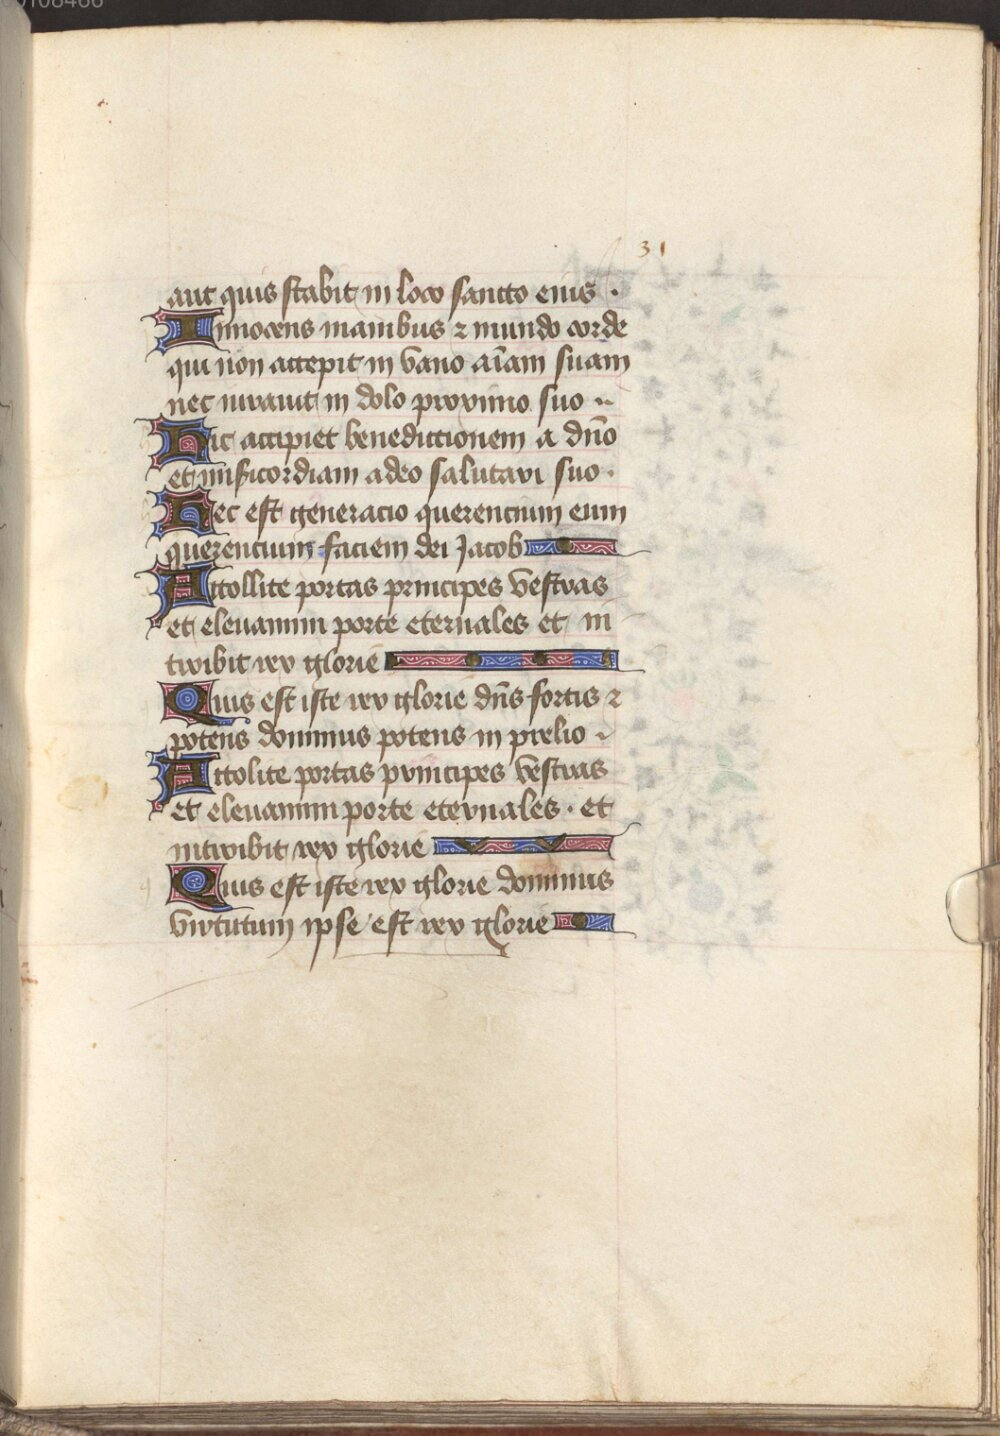 31
aut quis stabit in loco sancto eius ·
Innocens manibus ⁊ mundo corde
qui non accepit in vano aīam suam
nec iuravit in dolo proximo suo
Hic accipiet benedictionem a dn̄o
et misicordiam a deo salutari suo ·
Hec est generacio querencium eum
querencium faciem dei Jacob
Attollite portas principes vestras
et elevamini porte eternales et in
troibit rex glorie
Quis est iste rex glorie dn̄s fortis ⁊
potens dominus potens in prelio
Attolite portas principes vestras
et elevamini porte eternales · et
introibit rex glorie
Quis est iste rex glorie dominus
virtutum ipse est rex glorie